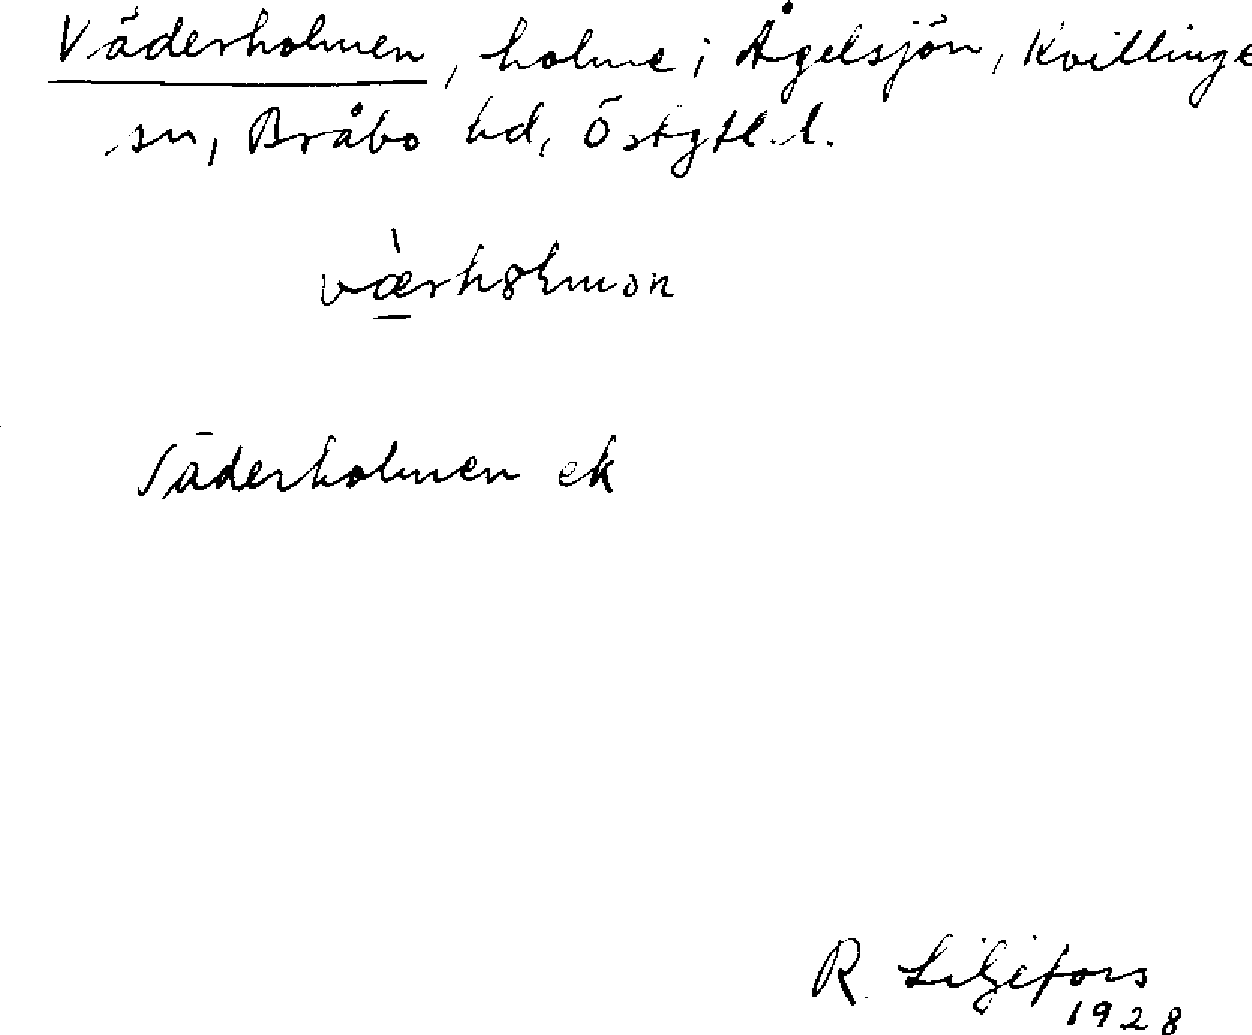 Väderholmen, holme i Ågelsjön, Kvillinge
sn, Bråbo hd, Östgtl. l.
Väderholmen ek
R. Liljefors
1928